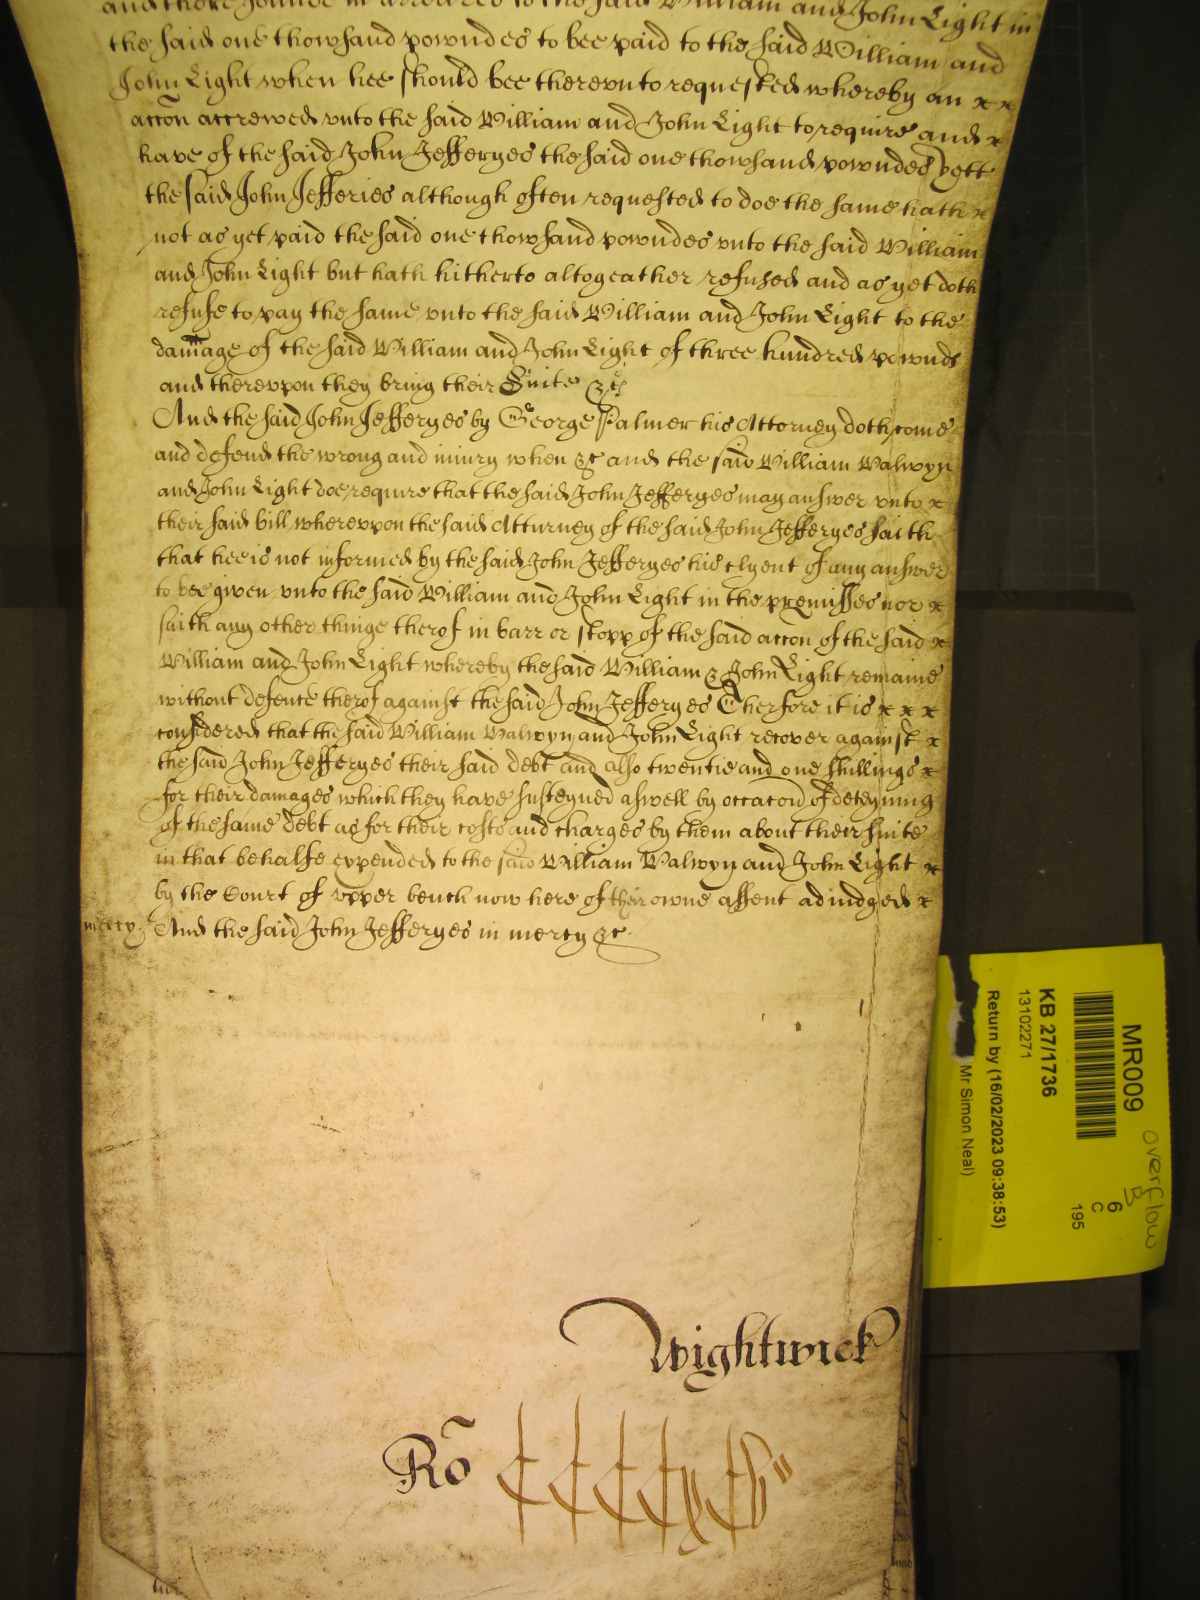 and there founde in arreares to the said William and John Light in
the said one thowsand powndes to bee paid to the said William and
John Light when hee should bee therevnto requested whereby an x x
accon accrewed vnto the said William and John Light to require and x
have of the said John Jefferyes the said one thowsand powndes yett
the said John Jefferies although often requested to doe the same hath x
not as yet paid the said one thowsand powndes vnto the said William
and John Light but hath hitherto altogeather refused and as yet doth
refuse to pay the same vnto the said William and John Light to the
damage of the said William and John Light of three hundred pownds
and therevpon they bring their Suite &c
And the said John Jefferyes by George Palmer his Attorney doth come
and defend the wrong and iniury when &c and the said William Walwyn
and John Light doe require that the said John Jefferyes may answer vnto x
their said bill wherevpon the said Atturney of the said John Jefferyes saith
that hee is not informed by the said John Jefferyes his clyent of any answer
to bee given vnto the said William and John Light in the premisses nor x
saith any other thinge therof in barr or stopp of the said accon of the said x
William and John Light whereby the said William & John Light remaine
without defence therof against the said John Jefferyes Therfore it is x x x
considered that the said William Walwyn and John Light recover against x
the said John Jefferyes their said debt and also twentie and one shillings x
for their damages which they have susteyned aswell by occacon of deteyning
of the same debt as for their costs and charges by them about their suite
in that behalfe expended to the said William Walwyn and John Light x
by the Court of vpper bench now here of their owne assent adiudged x
mercy. And the said John Jefferyes in mercy &c.
Wightwick
Ro
MR009
KB 27/1736
13102271
Return by (16/02/2023 09:38:53)
Mr Simon Neal)
6
C
195
overflow
B